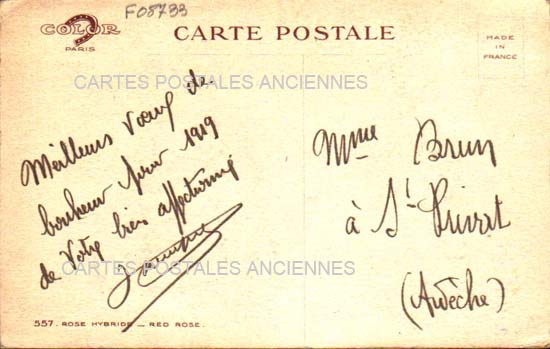 F08733
COLOR
PARIS
CARTE POSTALE
MADE
IN
FRANCE
CARTES POSTALES ANCIENNES
Meilleurs vœux de
bonheur pour 1919
de Votre bien affectionné
Mme Brun
à St Privat
(Ardèche)
CARTES POSTALES ANCIENNES
557. ROSE HYBRIDE — RED ROSE.